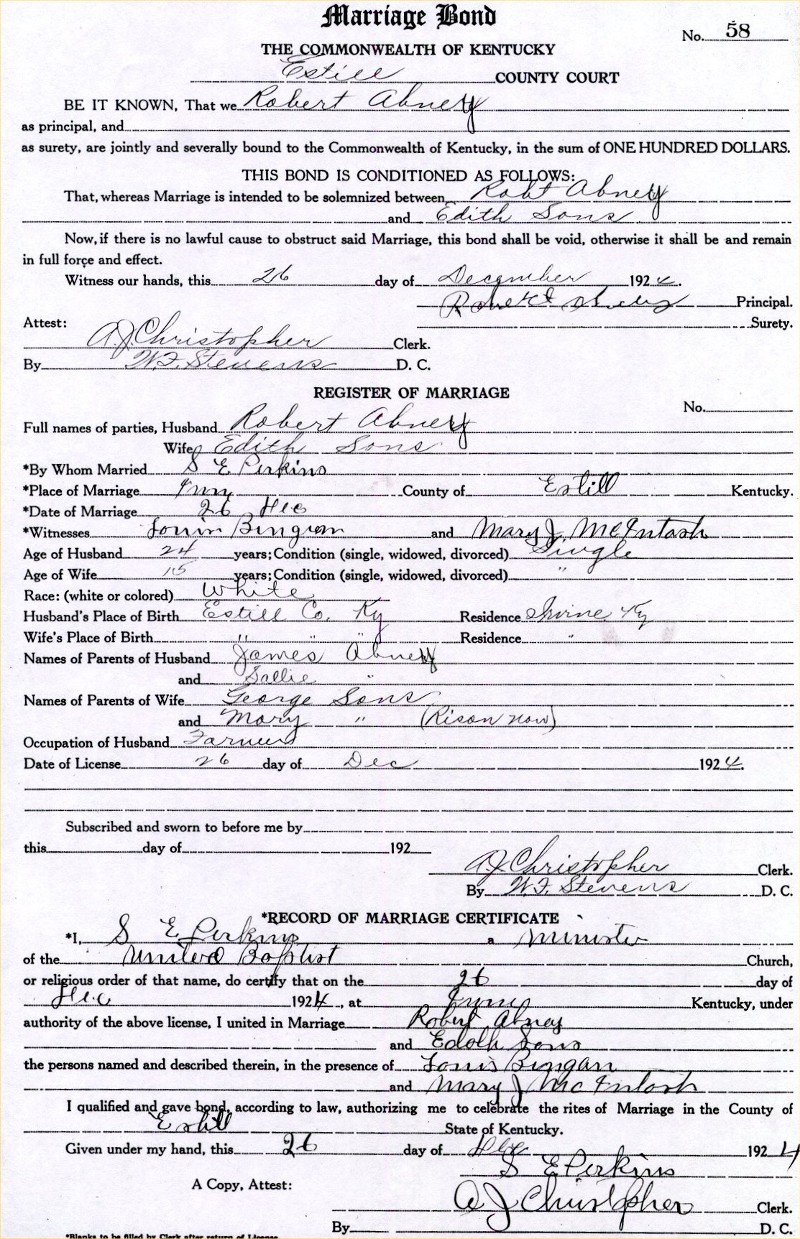 Marriage Bond
No. 58
THE COMMONWEALTH OF KENTUCKY
Estill COUNTY COURT
BE IT KNOWN, That we Robert Abney
as principal, and
as surety, are jointly and severally bound to the Commonwealth of Kentucky, in the sum of ONE HUNDRED DOLLARS.
THIS BOND IS CONDITIONED AS FOLLOWS:
That, whereas Marriage is intended to be solemnized between Robt Abney
and Edith Sons
Now, if there is no lawful cause to obstruct said Marriage, this bond shall be void, otherwise it shall be and remain
in full force and effect.
Witness our hands, this 26 day of December 1924.
Robert Principal.
Attest: Surety.
A.J. Christopher Clerk.
By W.F. Stevens D. C.
REGISTER OF MARRIAGE
No.
Full names of parties, Husband Robert Abney
Wife Edith Sons
*By Whom Married S E Perkins
*Place of Marriage County of Estill Kentucky.
*Date of Marriage 26 Dec
*Witnesses and Mary J McIntosh
Age of Husband 24 years; Condition (single, widowed, divorced) Single
Age of Wife 15 years; Condition (single, widowed, divorced) "
Race: (white or colored) White
Husband's Place of Birth Estill Co. Ky Residence Irvine Ky
Wife's Place of Birth " " " Residence "
Names of Parents of Husband James Abney
and Sallie "
Names of Parents of Wife George Sons
and Mary " (Rison now)
Occupation of Husband Farmer
Date of License 26 day of Dec 1924.
Subscribed and sworn to before me by
this day of 192
A.J. Christopher Clerk.
By W.F. Stevens D. C.
*RECORD OF MARRIAGE CERTIFICATE
*I, S E Perkins a Minister
of the United Baptist Church,
or religious order of that name, do certify that on the 26 day of
Dec 1924, at Kentucky, under
authority of the above license, I united in Marriage Robert Abney
and Edoth Sons
the persons named and described therein, in the presence of Louis Bingan
and Mary J McIntosh
I qualified and gave bond, according to law, authorizing me to celebrate the rites of Marriage in the County of
Estill State of Kentucky.
Given under my hand, this 26 day of Dec 1924
S E Perkins
A Copy, Attest: A J Christopher Clerk.
By D. C.
*Blanks to be filled by Clerk after return of License.